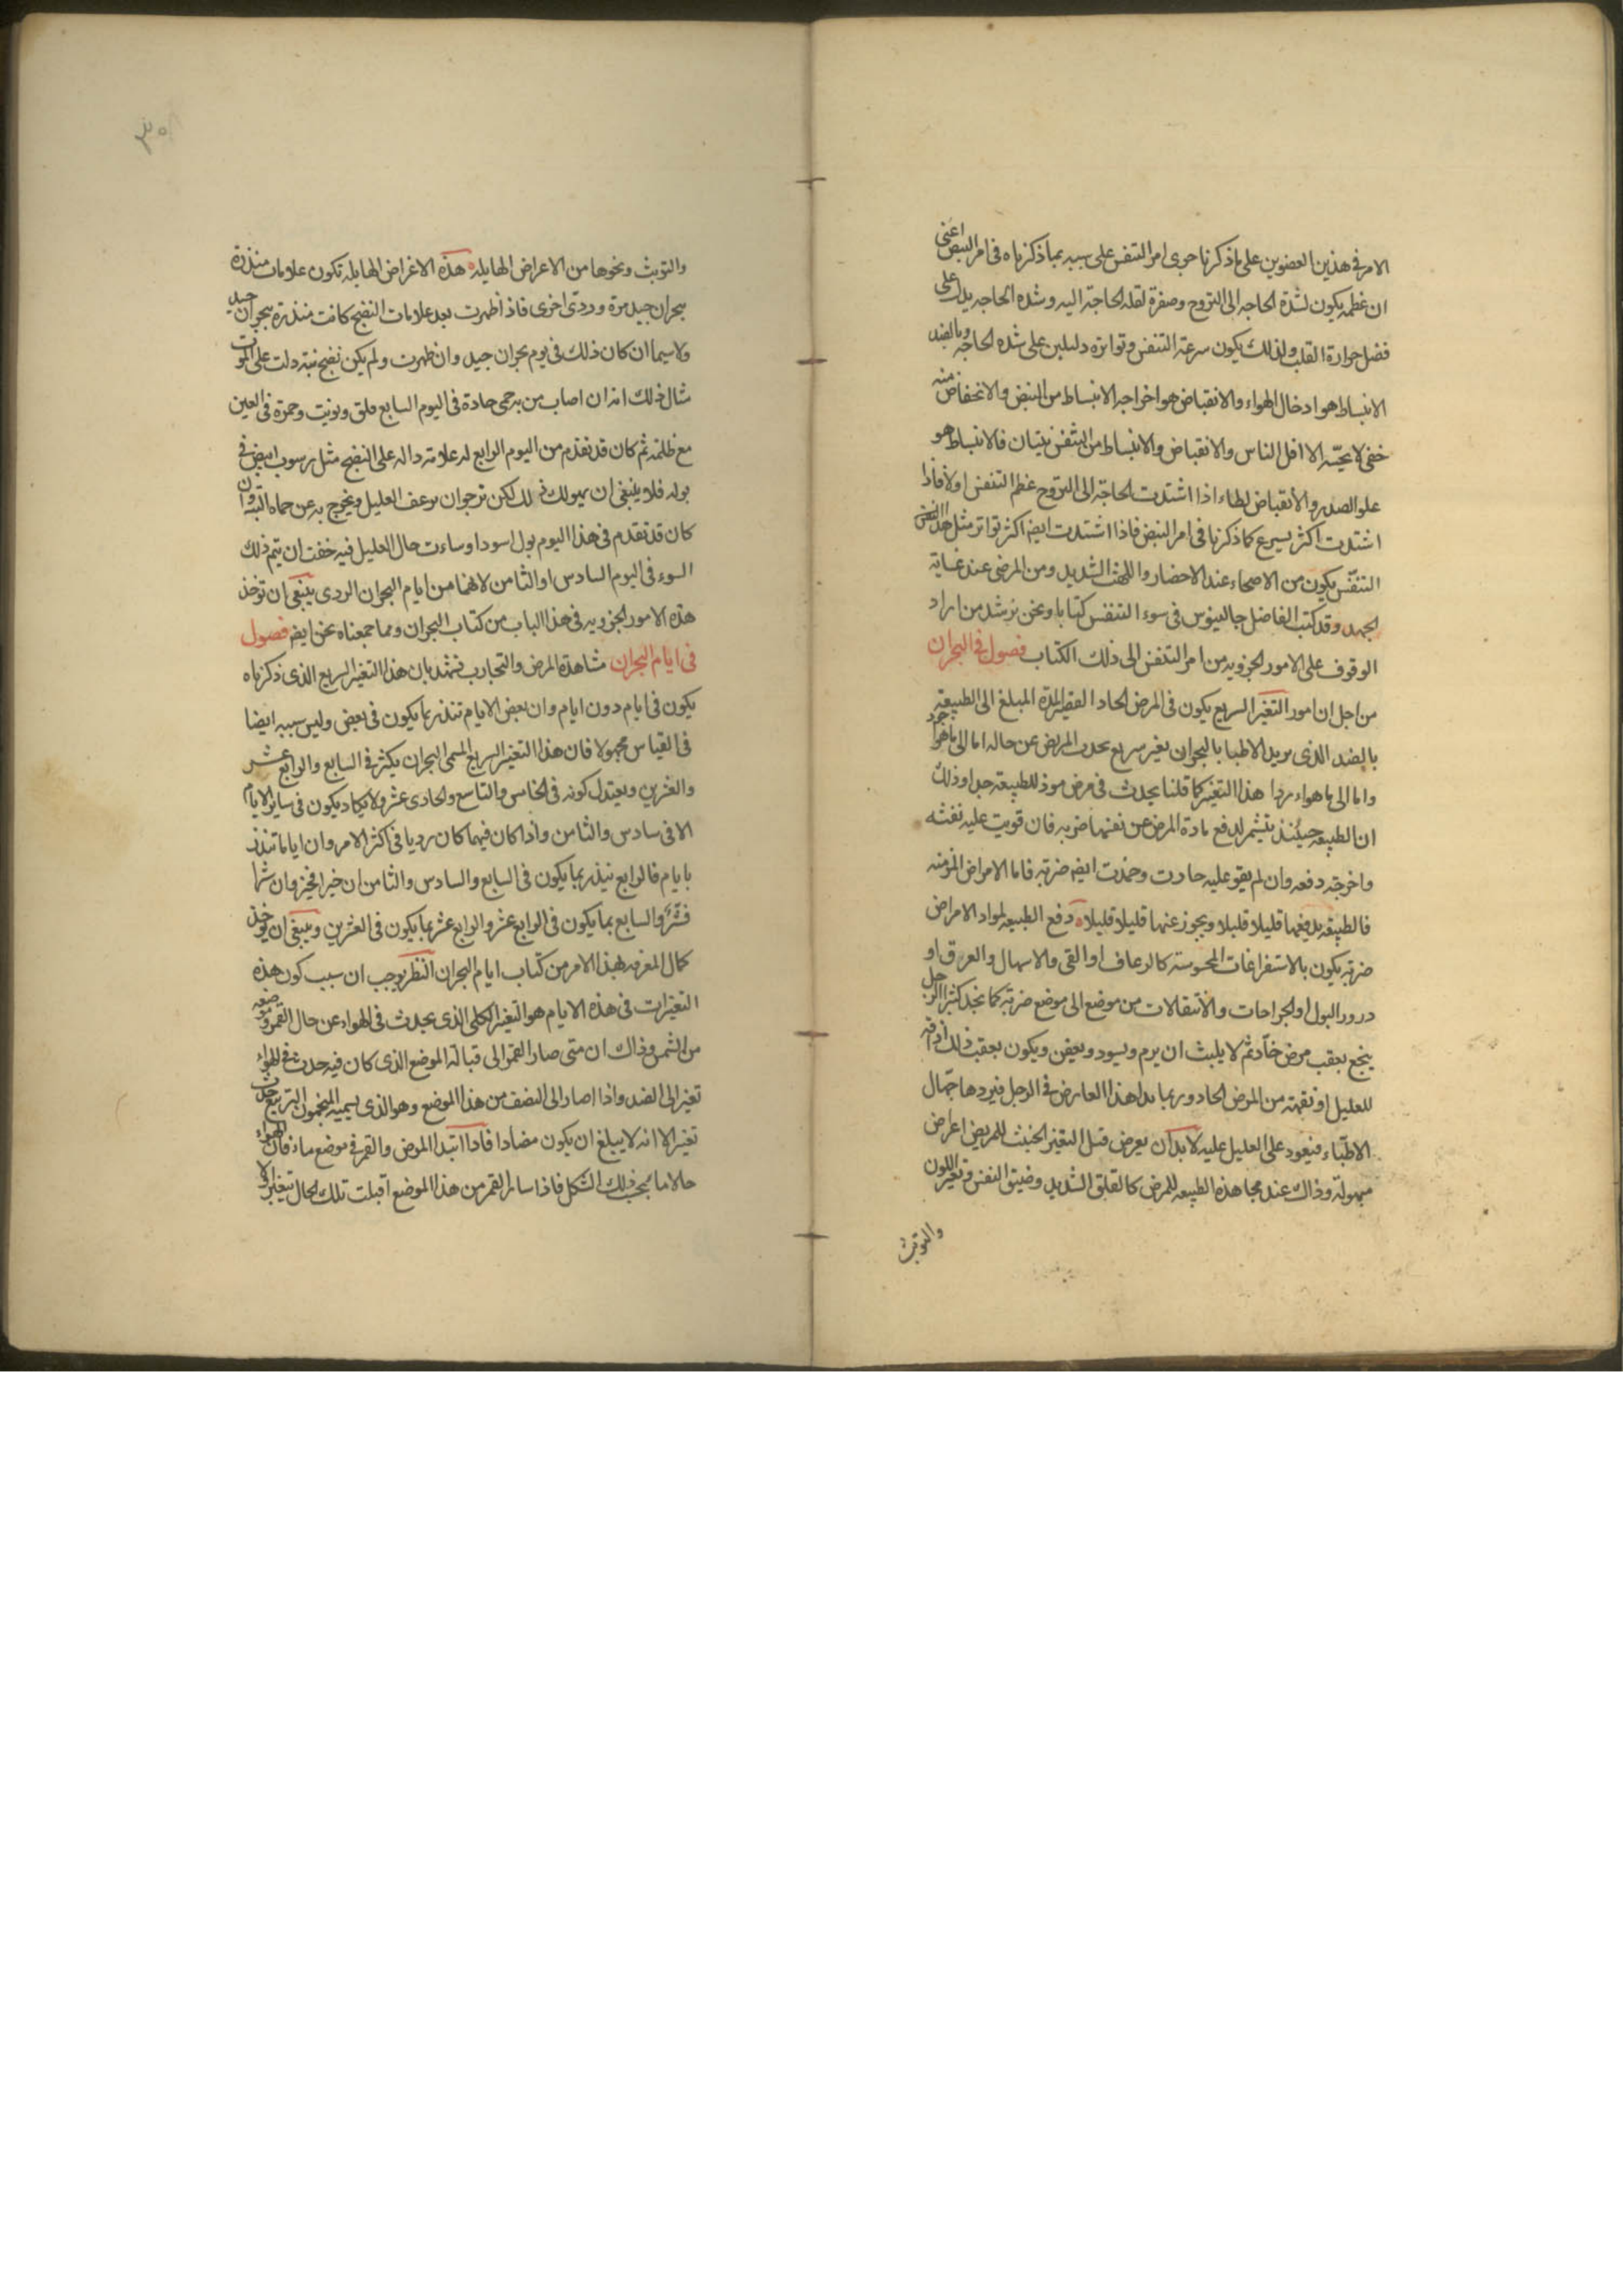 الامر فى هذين العضوين على ماذكرنا جرى امر التنفس على سببه بما ذكرناه فى امر النبض اعنى
ان عظمه يكون لشدة الحاجه الى التروح وصغرة لقله الحاجة اليه وشده الحاجه يدل على
فضل حرارة القلب ولذلك يكون سرعة التنفس وتواتره دليلين على شده الحاجه وبالضد
الانبساط هو ادخال الهواء والانقباض هو اخراجه الانبساط من النبض والانخفاض منه
خفى لا يحسّه الا اقل الناس والانقباض والانبساط من التنفس بينان فالانبساط هو
علو الصدر والانقباض لطاء اذا اشتدت الحاجة الى التروح عظم التنفس اولا فاذا
اشتدت اكثر يسرع كما ذكرنا فى امر النبض فاذا اشتدت ايضا اكثر تواتر مثل هذا النفس
التنفّس يكون من الاصحاء عند الاحضار واللهث الشديد ومن المرضى عند غاية
الجهد وقد كتب الفاضل جالينوس فى سوء التنفس كتابا ونحن نرشد من اراد
الوقوف على الامور الجزويه من امر التنفس الى ذلك الكتاب فصول فى البحران
من اجل ان امور التغير السريع يكون فى المرض الحاد القصير المدة المبلغ الى الطبيعة
بالضد الذى يريد الاطبا بالبحران تغير سريع يحدث المريض عن حاله اما الى ماهو اجود
واما الى ما هواء ردا هذا التغير كما قلنا يحدث فى مرض موذ للطبيعة جدا وذلك
ان الطبيعه حينئذ يتشمر لدفع مادة المرض عن نفسها ضربه فان قويت عليه نفثه
واخرجته دفعه وان لم يقو عليه حارت وخمدت ايضا ضربه فاما الامراض المزمنه
فالطبيعه يدفعها قليلا قليلا ويجوز عنها قليلا قليلا دفع الطبيعه لمواد الامراض
ضربه يكون بالاستفراغات المحسوسة كالرعاف او القى والاسهال والعرق او
درور البول او الجراحات والانتقالات من موضع الى موضع ضربه كما نجد كثيرا الرجل
ينجع بعقب مرض حادثم لا يلبث ان يرم ويسود ويعفن ويكون بعقب ذلك افاقة
للعليل او نقهته من المرض الحاد وربما بدا هذا العارض فى الرجل فيردها جهال
الاطبّاء فيعود على العليل عليه لابد ان يعرض قبل التغير الخبث للمريض اعراض
مهولة وذاك عند مجاهدة الطبيعه للمرض كالقلق الشديد وضيق النفس وتغير اللون
والتوثب
والتوثب ونحوها من الاعراض الهايله هذه الاعراض الهايله تكون علامات منذرة
ببحران جيد مرة وردى اخرى فاذ اظهرت بعد علامات النضج كانت منذرة ببحران جيد
ولاسيما ان كان ذلك فى يوم بحران جيد وان ظهرت ولم يكن نضج بتة دلت على الموت
مثال ذلك انه ان اصاب من به حمى حادة فى اليوم السابع قلق وتوثب وحمرة فى العين
مع ظلمة ثم كان قد تقدم من اليوم الرابع له علامة داله على النضج مثل رسوب ابيض فى
بوله فلا ينبغى ان يهولك ذلك لكن ترجوان يرعف العليل ويخرج به عن حماه البتة وان
كان قد تقدم فى هذا اليوم بول اسود او ساءت حال العليل فيه خفت ان يتم ذلك
السوء فى اليوم السادس او الثامن لانهما من ايام البحران الردى ينبغى ان توخذ
هذه الامور الجزويه فى هذا الباب من كتاب البحران ومما جمعناه نحن ايضا فصول
فى ايام البحران مشاهدة المرض والتجارب تشهد بان هذا التغير السريع الذى ذكرناه
يكون فى ايام دون ايام وان بعض الايام تنذر بما يكون فى بعض وليس سببه ايضا
فى القياس مجهولا فان هذا التغير السريع المسمى البحران يكثر فى السابع والرابع عشر
والعشرين ويعتدل كونه فى الخامس والتاسع والحادى عشر ولا يكاد يكون فى ساير الايام
الا فى سادس والثامن واذا كان فيهما كان رديا فى اكثر الامر وان اياما تنذر
بايام فالرابع ينذر بما يكون فى السابع والسادس والثامن ان خيرا فخير وان شرا
فشر والسابع بما يكون فى الرابع عشر والرابع عشر بما يكون فى العشرين وينبغى ان يوخذ
كمال المعرفه لهذا الامر من كتاب ايام البحران النظر يوجب ان سبب كون هذه
التغيرات فى هذه الايام هو التغير الكلى الذى يحدث فى الهواء عن حال القمر وموضعه
من الشمس وذاك ان متى صار القمر الى قبالة الموضع الذى كان فيه حدث فى الهواء
تغير الى الضد واذا صار الى النصف من هذا الموضع وهو الذى يسميه المنجمون التربيع حدث
تغير الا انه لا يبلغ ان يكون مضادا فاذا ابتدا المرض والقمر فى موضع ماء فان للهواء
حالا ما بحسب ذلك الشكل فاذا سار القمر من هذا الموضع اقبلت تلك الحال تتغير الا